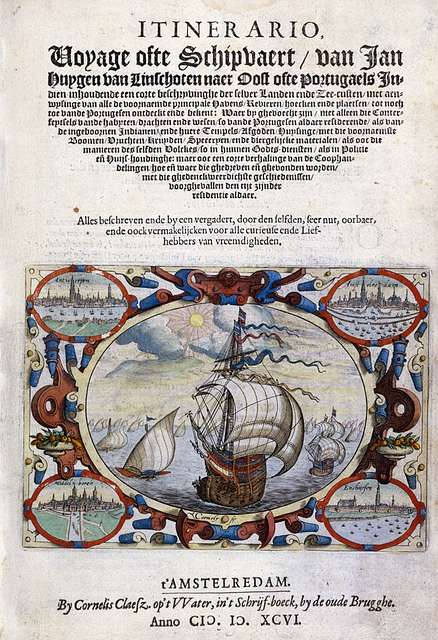 ITINERARIO,
Voyage ofte Schipvaert / van Jan
Huygen van Linschoten naer Oost ofte Portugaels In-
dien inhoudende een corte beschryvinghe der selver Landen ende Zee-custen / met aen-
wysinge van alle de voornaemde principale Havens / Revieren / hoecken ende plaetsen / tot noch
toe vande Portugesen ontdeckt ende bekent: Waer by ghevoecht zijn / niet alleen die Conter-
feytsels vande habyten / drachten ende wesen / so vande Portugesen aldaer residerende / als van-
de ingeboornen Indianen / ende huere Tempels / Afgoden / Huysinge / met die voornaemste
Boomen / Vruchten / Kruyden / Speceryen / ende diergelijcke materialen / als ooc die
manieren des selfden Volckes / so in hunnen Godts-diensten / als in Politie
en Huijs-houdinghe: maer ooc een corte verhalinge van de Coophan-
delingen / hoe en waer die ghedreven en ghevonden worden /
met die ghedenckweerdichste geschiedenissen /
voorghevallen den tijt zijnder
residentie aldaer.
Alles beschreven ende by een vergadert, door den selfden, seer nut, oorbaer,
ende oock vermakelijcken voor alle curieuse ende Lief-
hebbers van vreemdigheden.
Antwerpen
Amstelredam
Middelborch
Enchuysen
t'AMSTELREDAM.
By Cornelis Claesz. op't VVater, in't Schrijf-boeck, by de oude Brugghe.
Anno CIↃ. IↃ. XCVI.